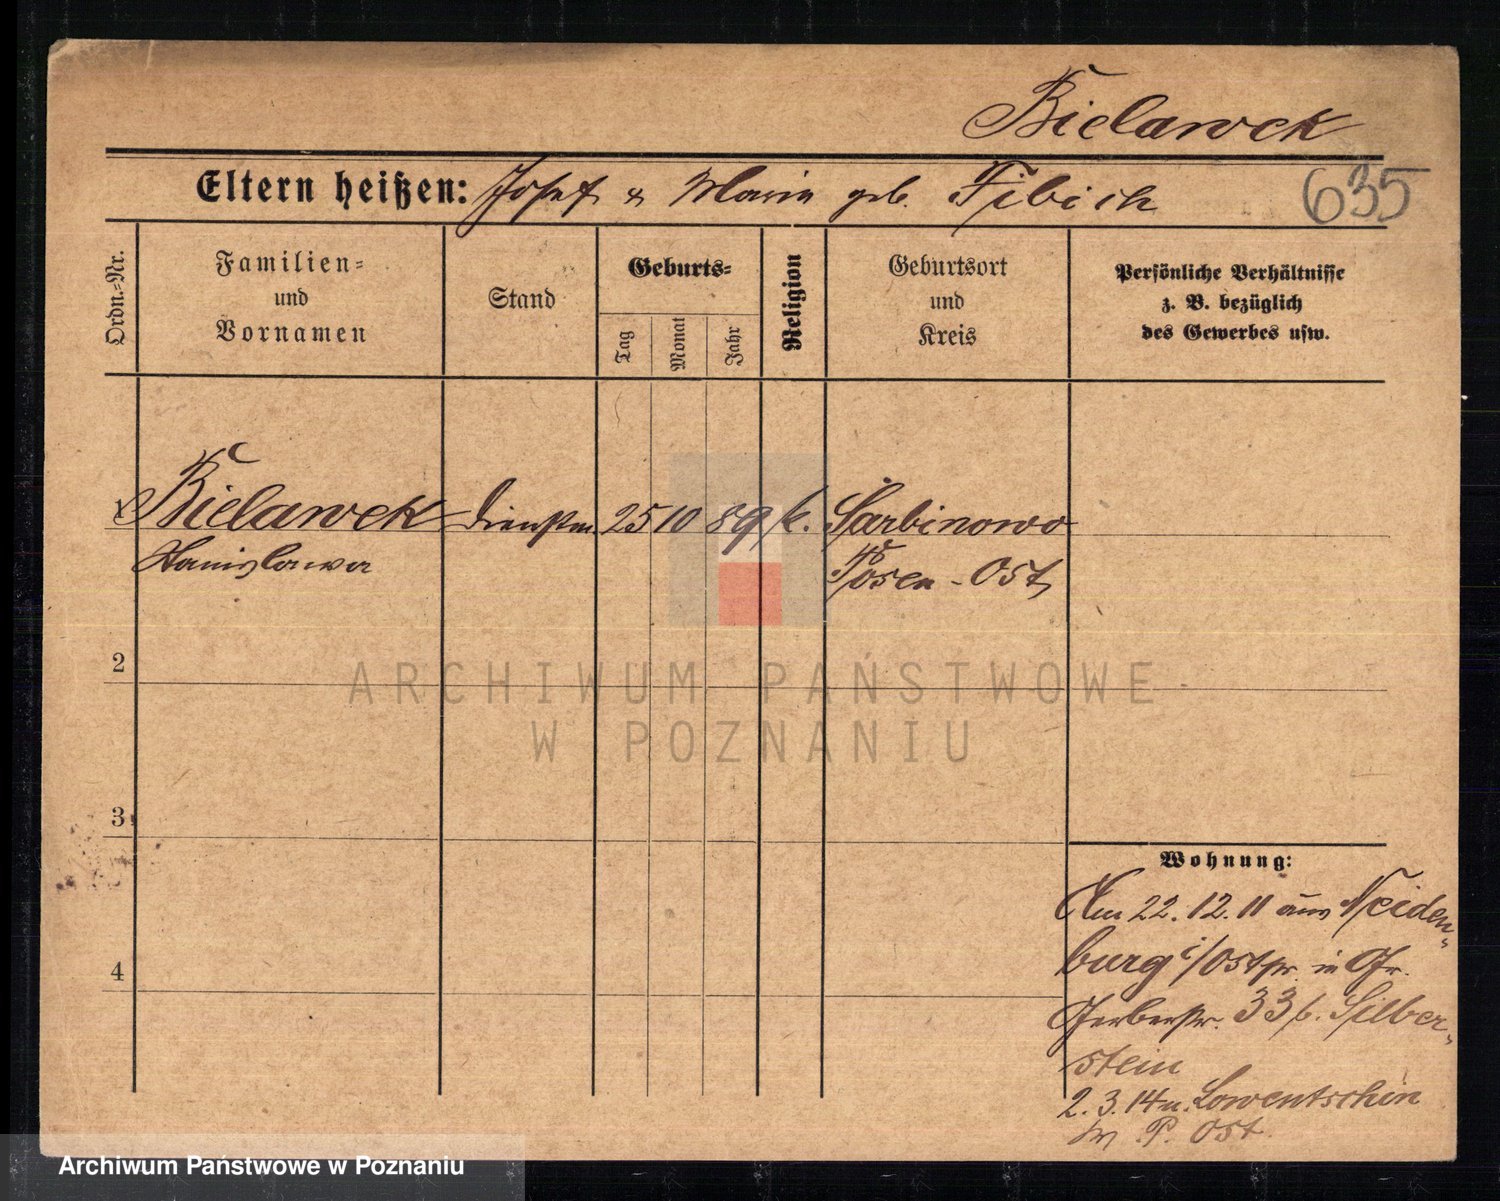 Bielawek
Eltern heißen: Josef u Maria geb. Fibich
635
Ordn.-Nr.
Familien-
und
Vornamen
Stand
Geburts-
Tag
Monat
Jahr
Religion
Geburtsort
und
Kreis
Persönliche Verhältnisse
z. B. bezüglich
des Gewerbes usw.
1 Bielawek Dienstm. 25 10 89 k. Sarbinowo
Stanislawa
Posen-Ost
2
3
4
Wohnung:
Am 22.12.11 aus Neiden-
burg i/Ostpr. in Gr.
Gerberstr. 33 b. Silber-
stein
2.3.14 n. Lowentschin
P. Ost
ARCHIWUM PAŃSTWOWE
W POZNANIU
Archiwum Państwowe w Poznaniu